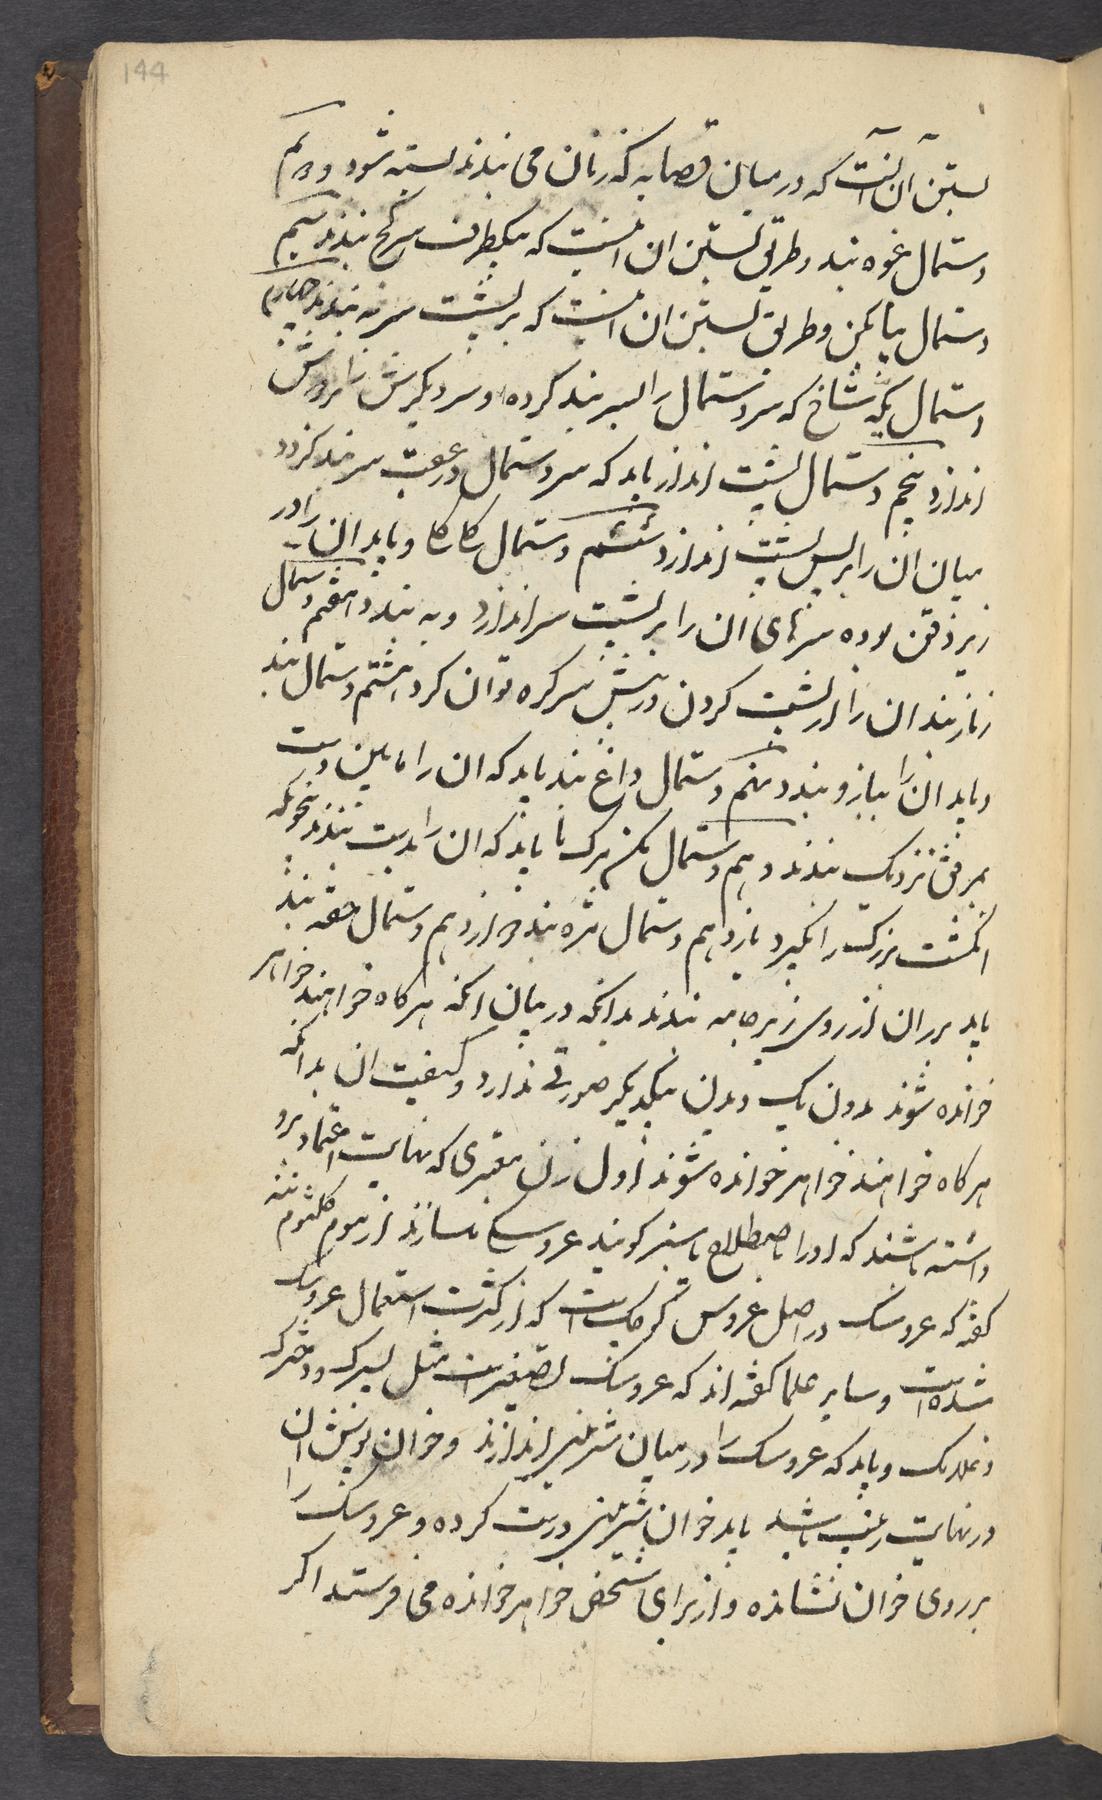 144
بستن آن آنست که در میان قصابه که زنان می بندند بسته شود دویم
دستمال غوه بند و طریق بستن ان انست که بیکطرف سر کج بندند سیم
دستمال یا یکن و طریق بستن ان انست که بر پشت سر بندند چهارم
دستمال یکه شاخ که سر دستمال را بسر بند کرده و سر دیگرش را بدوش
اندازد پنجم دستمال پشت انداز باید که سر دستمال در عقب سر بند کردد
میان ان را بر پس پشت اندازد ششم دستمال کا کا و باید ان را در
زیر ذقن بوده سرهای ان را بر پشت سر اندازد و به بندد هفتم دستمال
زنار بند ان را در پشت کردن و در پیش سر کره توان کرد هشتم دستمال بند
و باید ان را ببازو بندد نهم دستمال داغ بند باید که ان را مابین دست
بمرفق نزدیک بندند دهم دستمال باید که ان را بدست بندند بنحویکه
انگشت بزرک را بگیرد یازدهم دستمال دوازدهم دستمال حقه بند
باید بر ران از روی زیر جامه بندند بدانکه در بیان انکه هر کاه خواهند خواهر
خوانده شوند بدون یک دیدن یکدیگر صورتی ندارد و کیفیت ان بدانکه
هر کاه خواهند خواهر خوانده شوند اول زن معتبری که نهایت اعتماد برو
داشته باشند که او را باصطلاح کویند عروسک بسازند از موم کلثوم ننه
کفته که عروسک در اصل عروس کوچک است که از کثرت استعمال عروسک
شده است و سایر علما کفته اند که عروسک تصغیر است مثل پسرک و دخترک
و باید که عروسک را در میان شیرینی اندازند و خوان پوشش ان
در نهایت باشد باید خوان شیرینی درست کرده و عروسک را
بر روی خوان نشانده و از برای شخص خواهر خوانده می فرستد اکر